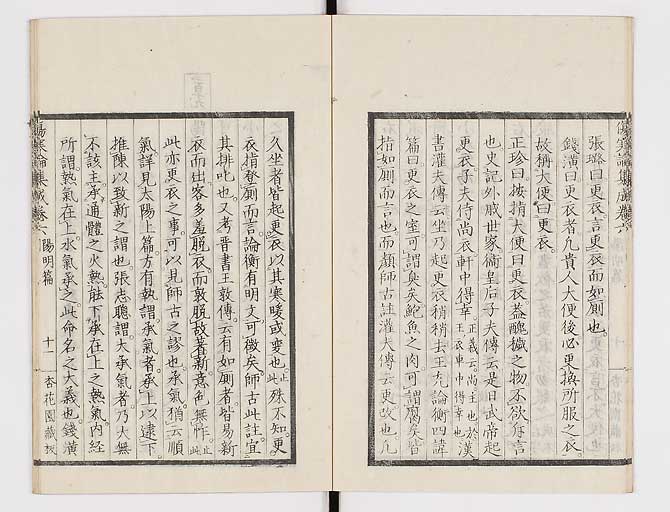 張璐曰更衣言更衣而如厠也
錢潢曰更衣者凡貴人大便後必更換所服之衣
故稱大便曰更衣
正珍曰按指大便曰更衣蓋醜穢之物不欲斥言
也史記外戚世家衞皇后子夫傳云是日武帝起
更衣子夫侍尚衣軒中得幸正義云尚主也於主衣車中得幸也漢
書灌夫傳云坐乃起更衣稍稍去王充論衡四諱
篇曰更衣之室可謂臭矣鮑魚之肉可謂腐矣皆
指如厠而言也而顏師古註灌夫傳云更改也凡
久坐者皆起更衣以其寒暖或變也止此殊不知更
衣指登厠而言論衡有明文可徵矣師古此註宜
其排叱也又考晉書王敦傳云有如厠者皆易新
衣而出客多羞脱衣而敦脱故著新意色無怍止此
此亦更衣之事可以見師古之謬也承氣猶云順
氣詳見太陽上篇方有執謂承氣者承上以逮下
推陳以致新之謂也張志聰謂大承氣者乃大無
不該主承通體之火熱胝下承在上之熱氣内經
所謂熱氣在上水氣承之此命名之大義也錢潢
傷寒論集成卷六
陽明篇
十一
杏花園藏板